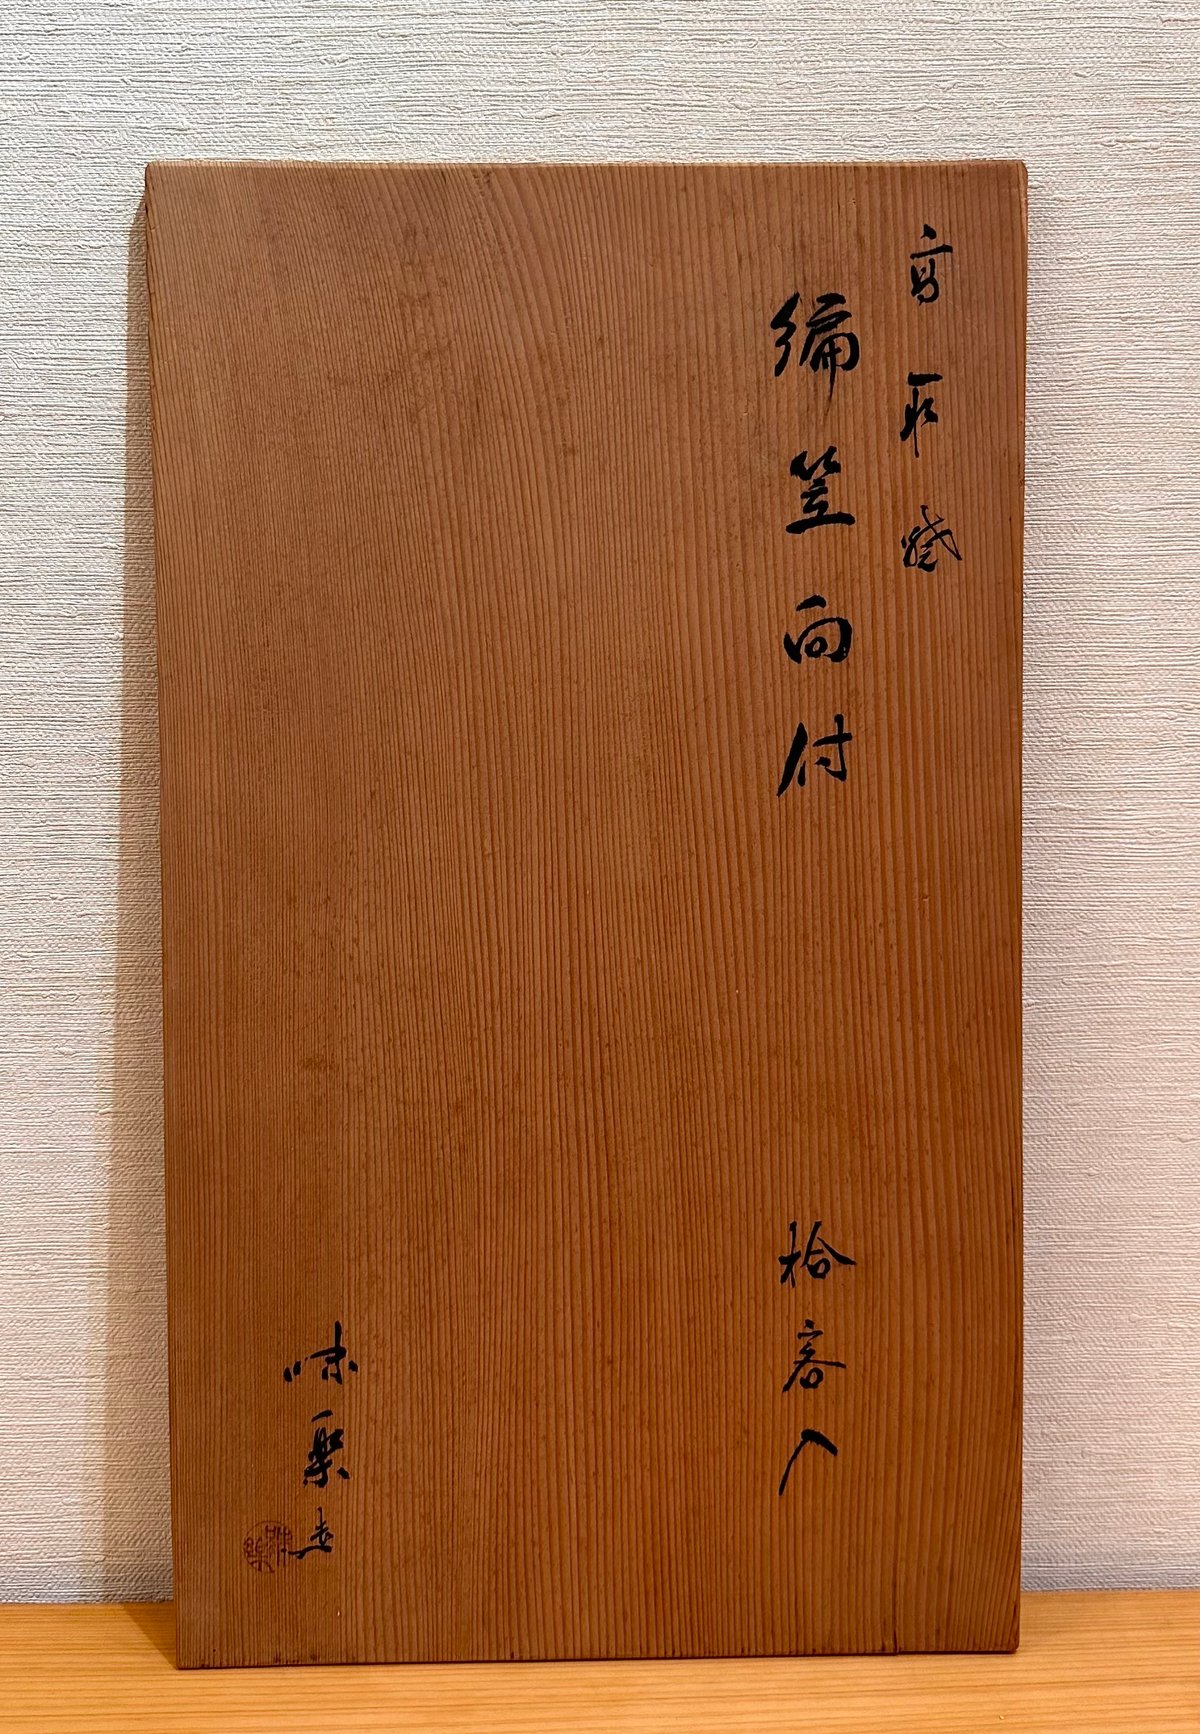 高取焼
編笠向付
拾客入
味楽造
味楽